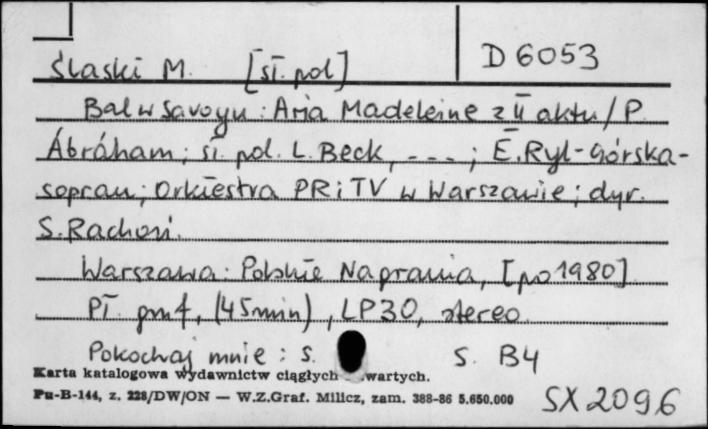 D 6053
Ślaski M. [sł. pol]
Bal w Savoyu : Aria Madeleine z II aktu / P.
Ábráham ; sł. pol. L. Beck, --- ; E. Ryl-Górska-
sopran ; Orkiestra PR i TV w Warszawie ; dyr.
S. Rachoń.
Warszawa : Polskie Nagrania, [po 1980]
Pł. gmf, (45 min), LP30, stereo.
Pokochaj mnie : s. S. B4
Karta katalogowa wydawnictw ciągłych wartych.
Pu-B-144, z. 228/DW/ON — W.Z.Graf. Milicz, zam. 388-86 5.650.000
SX 2096